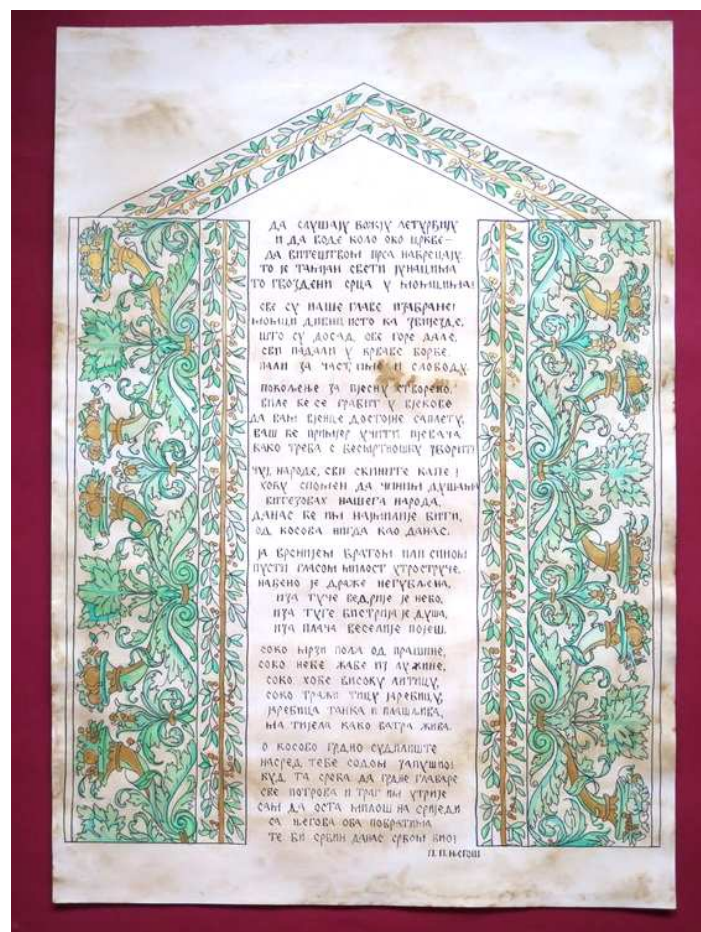 ДА СЛУШАЈУ БОЖЈУ ЛЕТУРЂИЈУ
И ДА ВОДЕ КОЛО ОКО ЦРКВЕ –
ДА ВИТЕШТВОМ ПРСА НАБРЕЦАЈУ.
ТО ЈЕ ТАМЈАН СВЕТИ ЈУНАЦИМА
ТО ГВОЗДЕНИ СРЦА У МОМЦИМА!
СВЕ СУ НАШЕ ГЛАВЕ ИЗАБРАНЕ!
МОМЦИ ДИВНИ, ИСТО КА ЗВИЈЕЗДЕ,
ШТО СУ ДОСАД ОВЕ ГОРЕ ДАЛЕ,
СВИ ПАДАЛИ У КРВАВЕ БОРБЕ,
ПАЛИ ЗА ЧАСТ, ИМЕ И СЛОБОДУ.
ПОКОЉЕЊЕ ЗА ПЈЕСНУ СТВОРЕНО,
ВИЛЕ ЋЕ СЕ ГРАБИТ У ВЈЕКОВЕ
ДА ВАМ ВЈЕНЦЕ ДОСТОЈНЕ САПЛЕТУ,
ВАШ ЋЕ ПРИМЈЕР УЧИТИ ПЈЕВАЧА
КАКО ТРЕБА С БЕСМРТНОШЋУ ЗБОРИТ!
ЧУЈ, НАРОДЕ, СВИ СКИНИТЕ КАПЕ!
ХОЋУ СПОМЕН ДА ЧИНИМ ДУШАМА
ВИТЕЗОВАХ НАШЕГА НАРОДА,
ДАНАС ЋЕ ИМ НАЈМИЛИЈЕ БИТИ,
ОД КОСОВА НИГДА КАО ДАНАС.
ЈА ВРСНИЈЕМ БРАТОМ ИЛИ СИНОМ
ПУСТИ ГЛАСОМ МИЛОСТ УТРОСТРУЧЕ.
НАЂЕНО ЈЕ ДРАЖЕ НЕГУБЉЕНА,
ИЗА ТУЧЕ ВЕДРИЈЕ ЈЕ НЕБО,
ИЗА ТУГЕ БИСТРИЈА ЈЕ ДУША,
ИЗА ПЛАЧА ВЕСЕЛИЈЕ ПОЈЕШ.
СОКО МРЗИ ПОЛА ОД ПРАШИНЕ,
СОКО НЕЋЕ ЖАБЕ ИЗ ЛУЖИНЕ,
СОКО ХОЋЕ ВИСОКУ ЛИТИЦУ,
СОКО ТРАЖИ ТИЦУ ЈАРЕБИЦУ,
ЈАРЕБИЦА ТАНКА И ПЛАШЉИВА,
МА ТИЈЕЛА КАКО ВАТРА ЖИВА.
О КОСОВО ГРДНО СУДИЛИШТЕ
НАСРЕД ТЕБЕ СОДОМ ЗАПУШИО!
КУД ТА СРЕЋА ДА ГРДНЕ ГЛАВАРЕ
СВЕ ПОТРОВА И ТРАГ ИМ УТРИЈЕ
САМ ДА ОСТА МИЛОШ НА СРИЈЕДИ
СА ЊЕГОВА ОБА ПОБРАТИМА
ТЕ БИ СРБИН ДАНАС СРБОМ БИО!
П. П. ЊЕГОШ